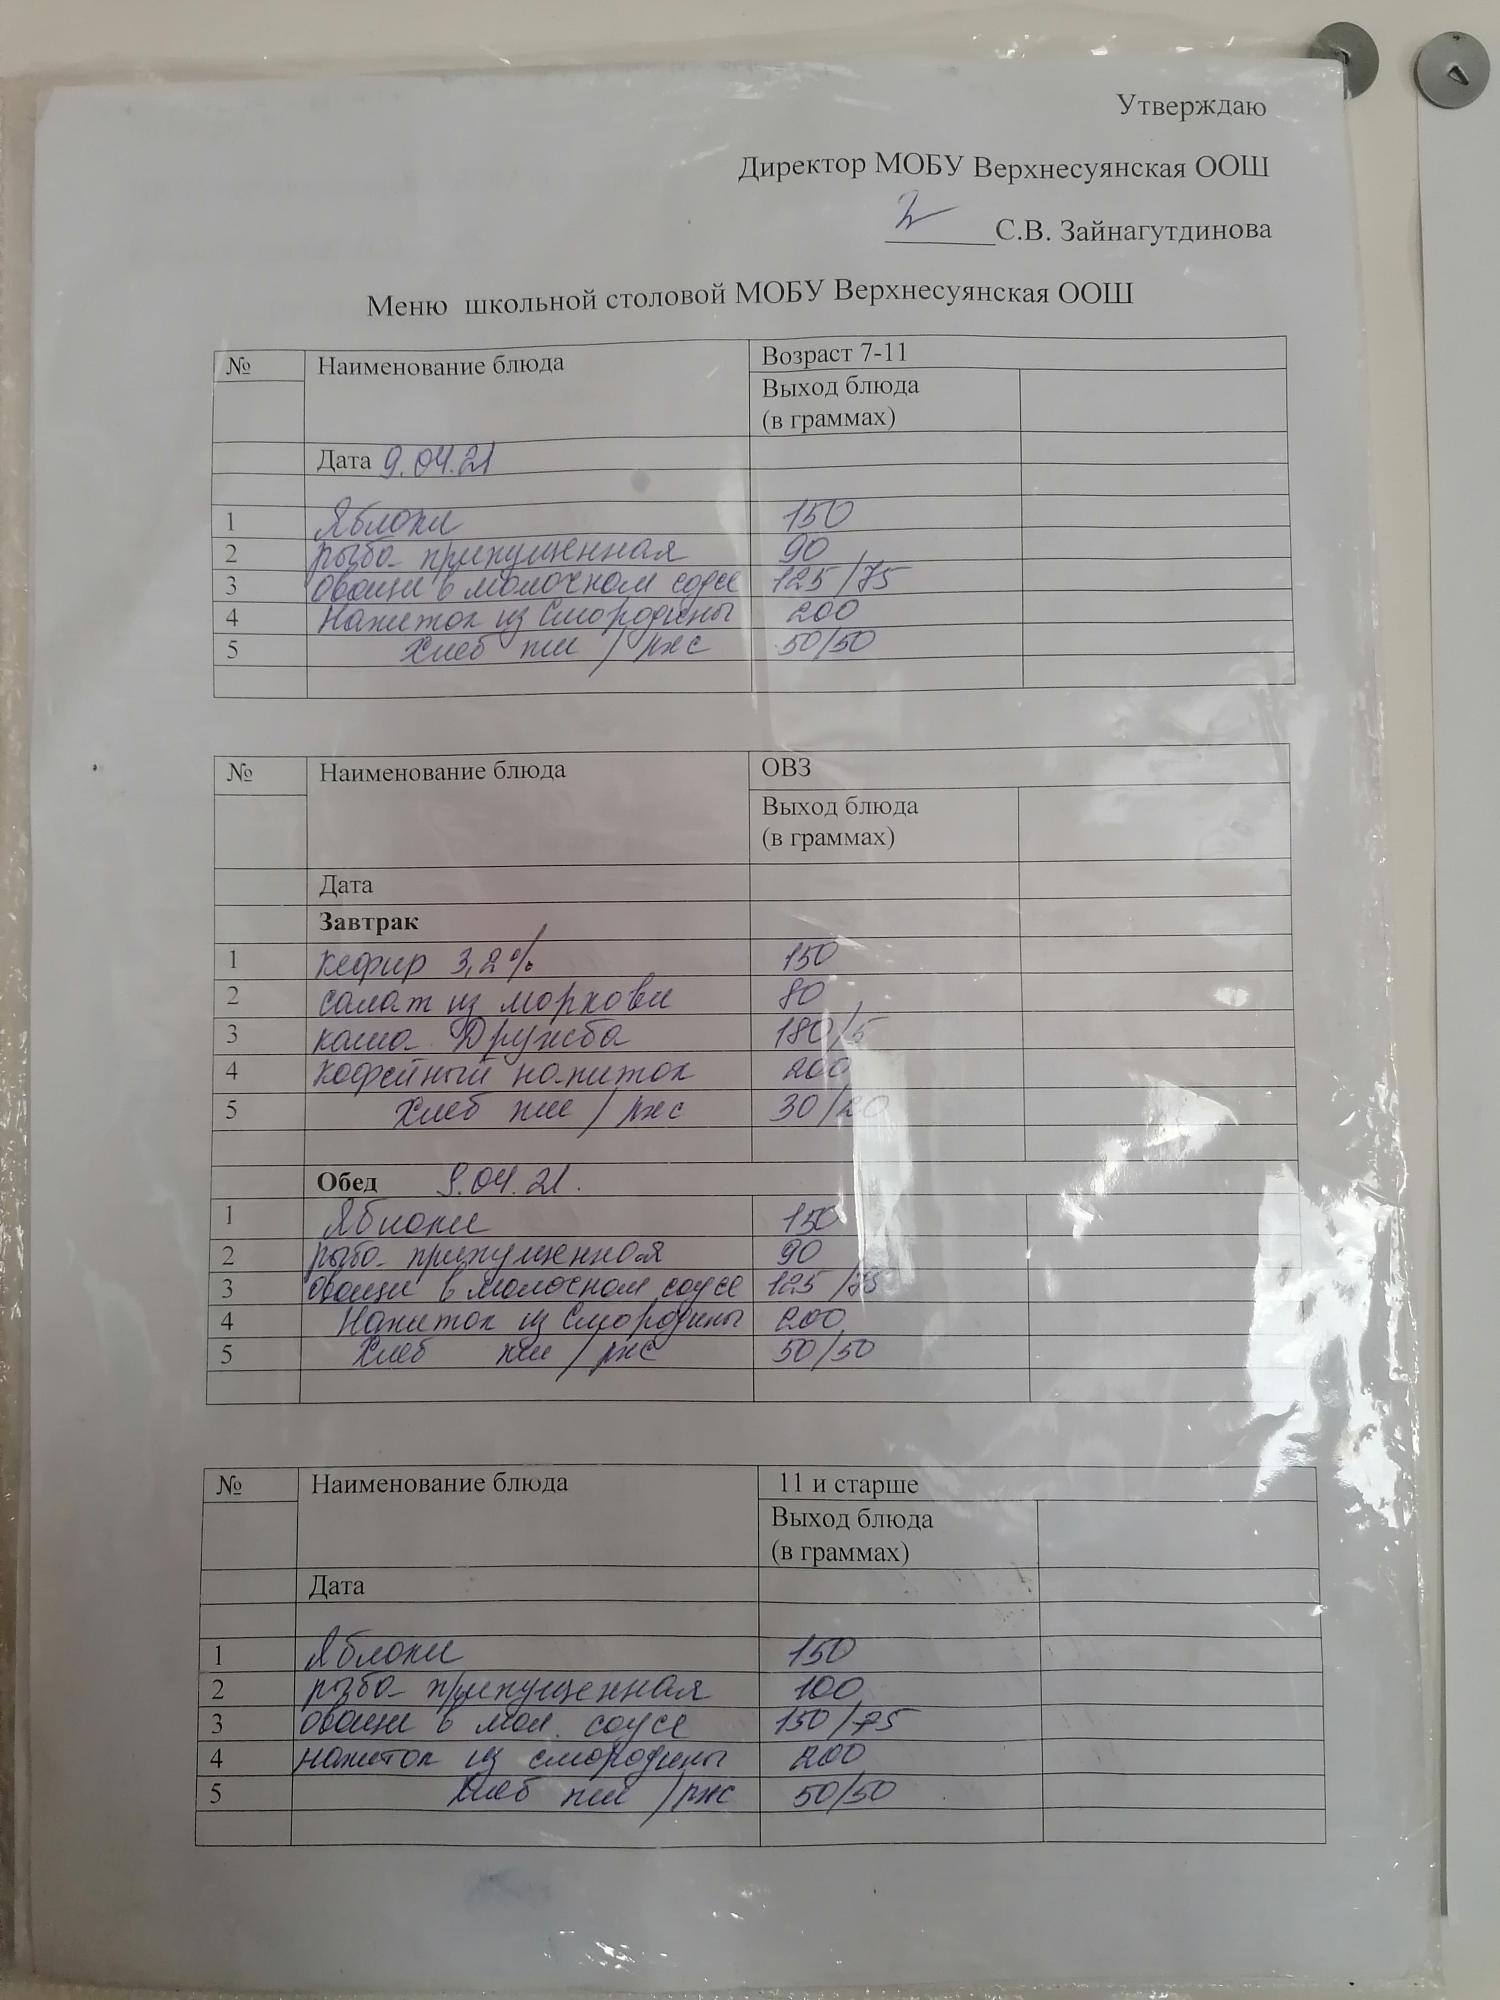 Утверждаю
Директор МОБУ Верхнесуянская ООШ
С.В. Зайнагутдинова
Меню школьной столовой МОБУ Верхнесуянская ООШ
№ Наименование блюда Возраст 7-11
Выход блюда
(в граммах)
Дата 9.04.21
1 Яблоки 150
2 рыба припущенная 90
3 овощи в молочном соусе 125/75
4 Напиток из Смородины 200
5 Хлеб пш / ржс 50/50
№ Наименование блюда ОВЗ
Выход блюда
(в граммах)
Дата
Завтрак
1 кефир 3,2% 150
2 салат из моркови 80
3 каша Дружба 180/5
4 кофейный напиток 200
5 Хлеб пш / ржс 30/20
Обед 9.04.21.
1 Яблоки 150
2 рыба припущенная 90
3 овощи в молочном соусе 125/75
4 Напиток из Смородины 200
5 Хлеб пш / ржс 50/50
№ Наименование блюда 11 и старше
Выход блюда
(в граммах)
Дата
1 Яблоки 150
2 рыба припущенная 100
3 овощи в мол. соусе 150/75
4 напиток из смородины 200
5 Хлеб пш / ржс 50/50